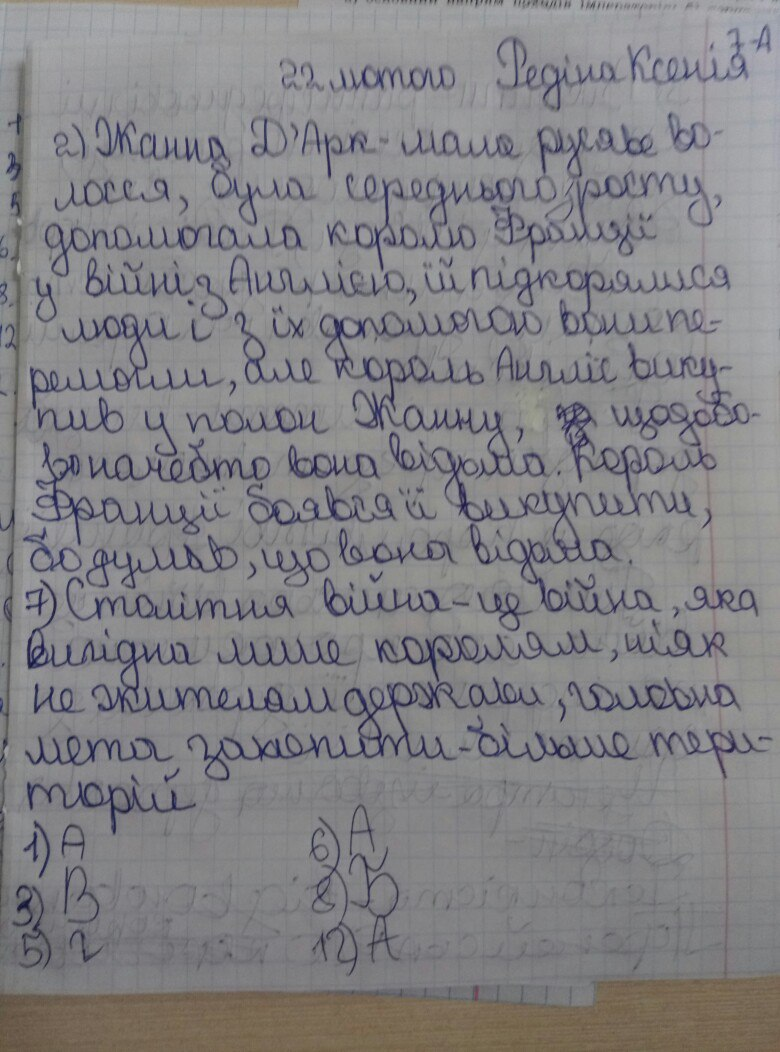 7-А
22 лютого Редіна Ксенія
2) Жанна Д'Арк - мала русяве во-
лосся, була середнього росту,
допомогала королю Франції
у війні з Англією, її підкорялися
люди і з їх допомогою вони пе-
ремогли, але король Англіє вику-
пив у полон Жанну, щодобо-
воначебто вона відьма. Король
Франції боявся її викупити,
бо думав, що вона відьма.
7) Столітня війна - це війна, яка
вигідна лише королям, ніяк
не жителям держави, головна
мета захопити - більше тери-
торій
1) А
6) А
3) В
8) Б
5) г
12) А